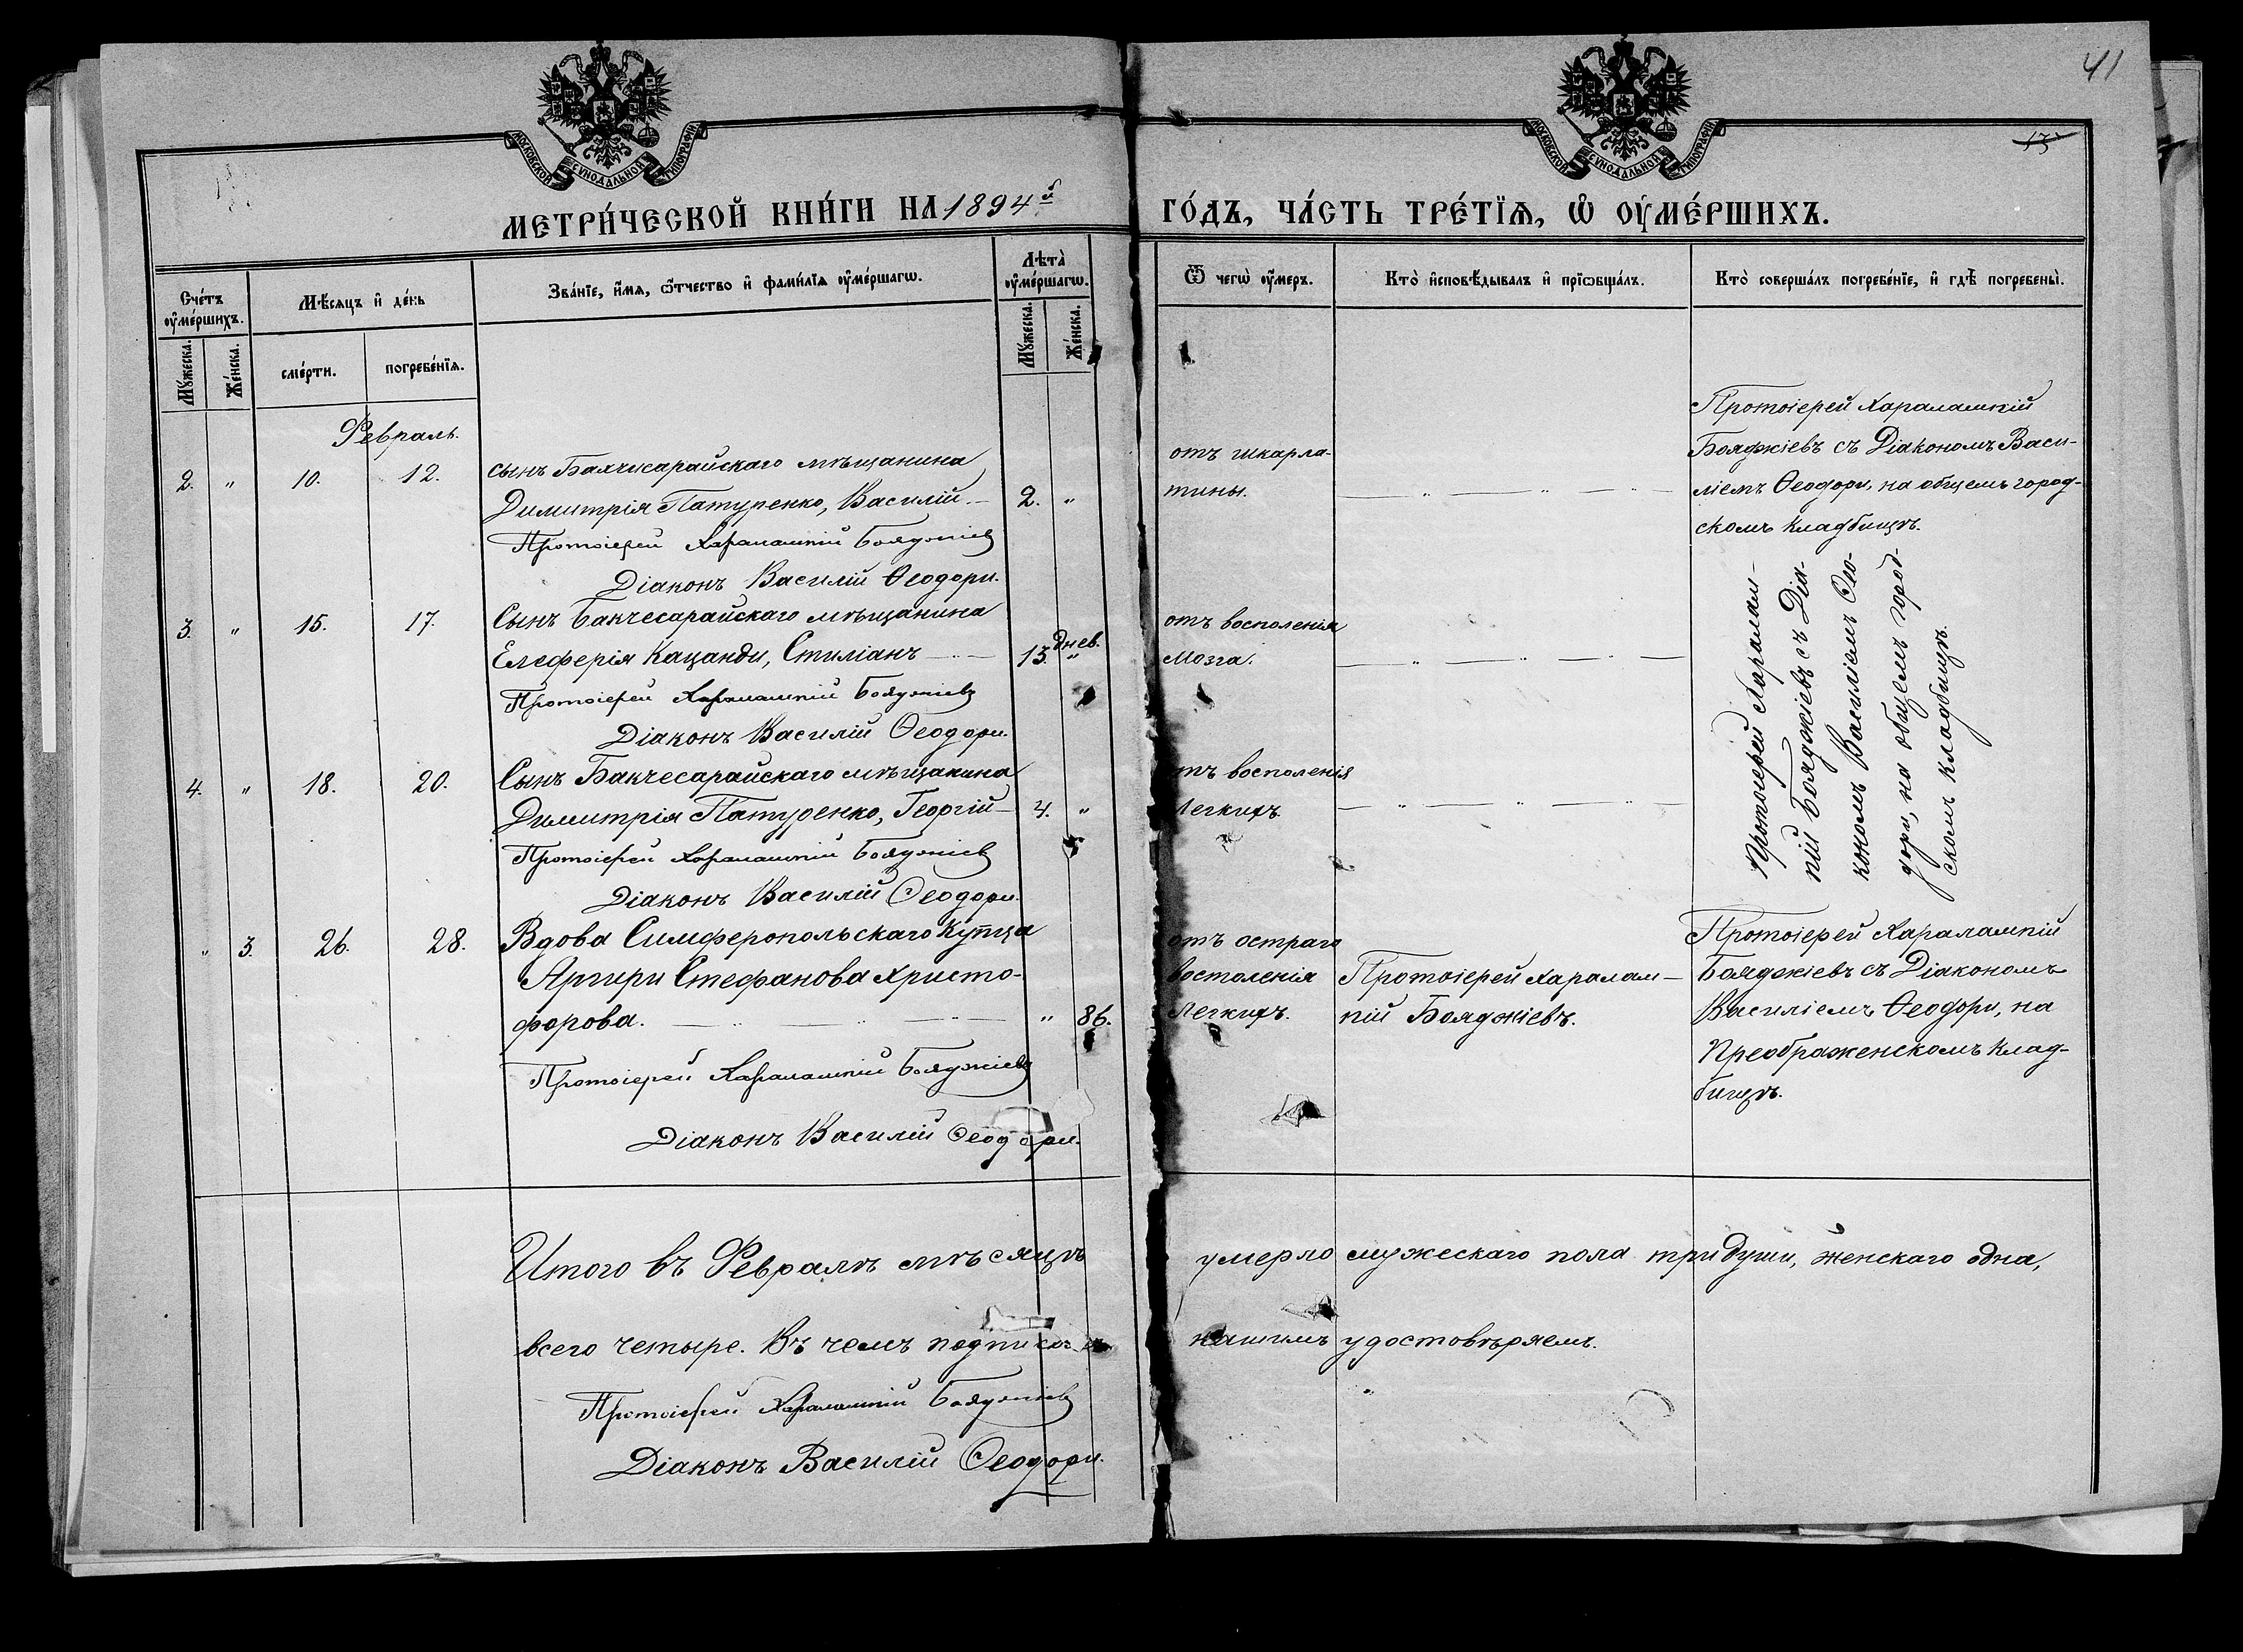 41
13
МОСКОВСКОЙ СѴНОДАЛЬНОЙ ТИПОГРАФІИ
МОСКОВСКОЙ СѴНОДАЛЬНОЙ ТИПОГРАФІИ
МЕТРИ́ЧЕСКОЙ КНИ́ГИ НА 1894й ГО́ДЪ, ЧА́СТЬ ТРЕ́ТЇѦ, Ѡ҆ ОУ҆МЕ́РШИХЪ.
Сче́тъ оу҆ме́ршихъ.
Мꙋ́жеска.
Же́нска.
Мѣ́сѧцъ и҆ де́нь
сме́рти.
погребе́нїѧ.
Зва́нїе, и҆́мѧ, ѻ҆́тчество и҆ фами́лїѧ оу҆ме́ршагѡ.
Лѣта̀ оу҆ме́ршагѡ.
Мꙋ́жеска.
Же́нска.
Ѿ чегѡ̀ оу҆́меръ.
Кто̀ и҆сповѣ́дывалъ и҆ прїѡбща́лъ.
Кто̀ соверша́лъ погребе́нїе, и҆ гдѣ̀ погребены̀.
Февраль.
2. " 10. 12.
сынъ Бахчисарайскаго мѣщанина
Димитрія Патуренко, Василій. — 2. "
Протоіерей Харалампій Бояджіевъ
Діаконъ Василій Ѳеодори.
отъ шкарла-
тины.
— " — " — " —
Протоіерей Харалампій
Бояджіевъ съ Діакономъ Васи-
ліемъ Ѳеодори, на общемъ город-
скомъ кладбищѣ.
3. " 15. 17.
Сынъ Бахчесарайскаго мѣщанина
Елеферія Кацанди, Стиліанъ — " — 13. днев. "
Протоіерей Харалампій Бояджіевъ
Діаконъ Василій Ѳеодори.
отъ восполенія
мозга.
— " — " — " —
Протоіерей Харалам-
пій Бояджіевъ съ Діа-
кономъ Василіемъ Ѳео-
дори, на общемъ город-
скомъ кладбищѣ.
4. " 18. 20.
Сынъ Бахчесарайскаго мѣщанина
Димитрія Патуренко, Георгій — 4. "
Протоіерей Харалампій Бояджіевъ
Діаконъ Василій Ѳеодори.
отъ восполенія
Легкихъ.
— " — " — " —
" 3. 26. 28.
Вдова Симферопольскаго Купца
Аргири Стефанова Христо-
форова. — " — " — " — " 86.
Протоіерей Харалампій Бояджіевъ
Діаконъ Василій Ѳеодори.
отъ остраго
восполенія
Легкихъ.
Протоіерей Харалам-
пій Бояджіевъ.
Протоіерей Харалампій
Бояджіевъ съ Діакономъ
Василіемъ Ѳеодори, на
Преображенскомъ клад-
бищѣ.
Итого въ Февралѣ мѣсяцѣ умерло мужескаго пола три души, женскаго одна,
всего четыре. Въ чемъ подписомъ нашимъ удостовѣряемъ.
Протоіерей Харалампій Бояджіевъ
Діаконъ Василій Ѳеодори.